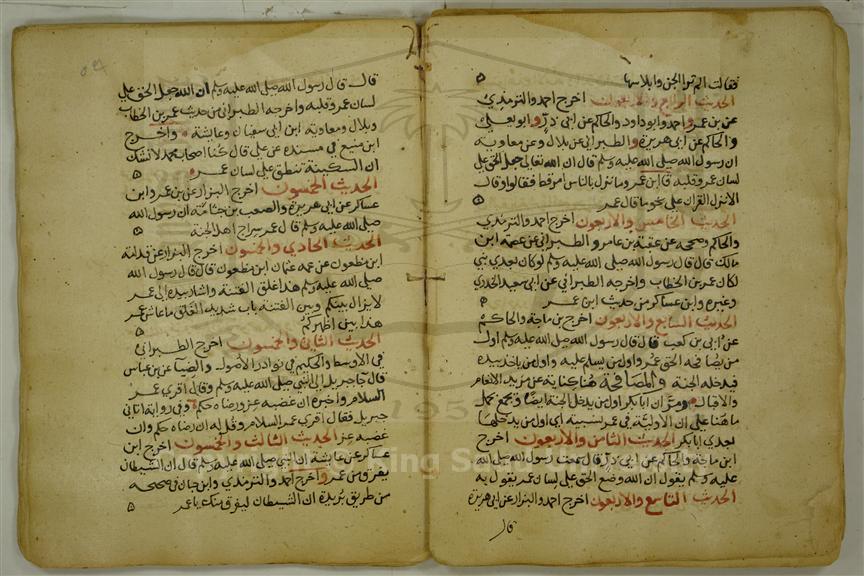 فقالت الم تر الجن وابلاسها
الحديث الرابع والاربعون اخرج احمد والترمذي
عن بن عمر واحمد وابو داود والحاكم عن ابي ذر وابو يعلى
والحاكم عن ابي هريرة والطبراني عن بلال وعن معاوية
ان رسول الله صلى الله عليه وسلم قال ان الله تعالى جعل الحق على
لسان عمر وقلبه قال ابن عمر وما نزل بالناس امر قط فقالوا وقال
الا نزل القران على نحو ما قال عمر
الحديث الخامس والاربعون اخرج احمد والترمذي
والحاكم وصححه عن عقبة بن عامر والطبراني عن عصمة ابن
مالك قال قال رسول الله صلى الله عليه وسلم لو كان بعدي نبي
لكان عمر بن الخطاب واخرجه الطبراني عن ابي سعيد الخدري
وغيره وابن عساكر من حديث ابن عمر
الحديث السابع والاربعون اخرج بن ماجة والحاكم
عن ابي بن كعب قال قال رسول الله صلى الله عليه وسلم اول
من يصافحه الحق عمر واول من يسلم عليه واول من ياخذ بيده
فيدخله الجنة والمصافحة هنا كناية عن مزيد الانعام
والاقبال ومر ان ابا بكر اول من يدخل الجنة ايضا وتجمع بحمل
ما هنا على ان الاولية في عمر نسبية اي اول من يدخلها
بعد ابي بكر الحديث الثامن والاربعون اخرج
ابن ماجة والحاكم عن ابي ذر قال سمعت رسول الله صلى الله
عليه وسلم يقول ان الله وضع الحق على لسان عمر يقول به
الحديث التاسع والاربعون اخرج احمد والبزار عن ابي هريرة
قال
قال قال رسول الله صلى الله عليه وسلم ان الله جعل الحق على
لسان عمر وقلبه واخرجه الطبراني من حديث عمر بن الخطاب
وبلال ومعاوية ابن ابي سفيان وعايشة واخرج
ابن منيع في مسنده عن علي قال كنا اصحاب محمد لا نشك
ان السكينة تنطق على لسان عمر
الحديث الخمسون اخرج البزار عن بن عمر وابن
عساكر عن ابي هريرة والصعب بن جثامة ان رسول الله
صلى الله عليه وسلم قال عمر سراج اهل الجنة
الحديث الحادي والخمسون اخرج البزار عن قدامة
ابن مظعون عن عمه عثمان ابن مظعون قال قال رسول الله
صلى الله عليه وسلم هذا غلق الفتنة واشار بيده الى عمر
لا يزال بينكم وبين الفتنة باب شديد الغلق ما عاش عمر
هذا بين اظهركم
الحديث الثاني والخمسون اخرج الطبراني
في الاوسط والحكيم في نوادر الاصول والضيا عن بن عباس
قال جا جبريل الى النبي صلى الله عليه وسلم وقال اقري عمر
السلام واخبره ان غضبه عز ورضاه حكم وفي رواية اتاني
جبريل فقال اقري عمر السلام وقل له ان رضاه حكم وان
غضبه عز الحديث الثالث والخمسون اخرج ابن
عساكر عن عايشة ان النبي صلى الله عليه وسلم قال ان الشيطان
يفرق من عمر واخرج احمد والترمذي وابن حبان في صحيحه
من طريق بريدة ان الشيطان ليفرق منك يا عمر